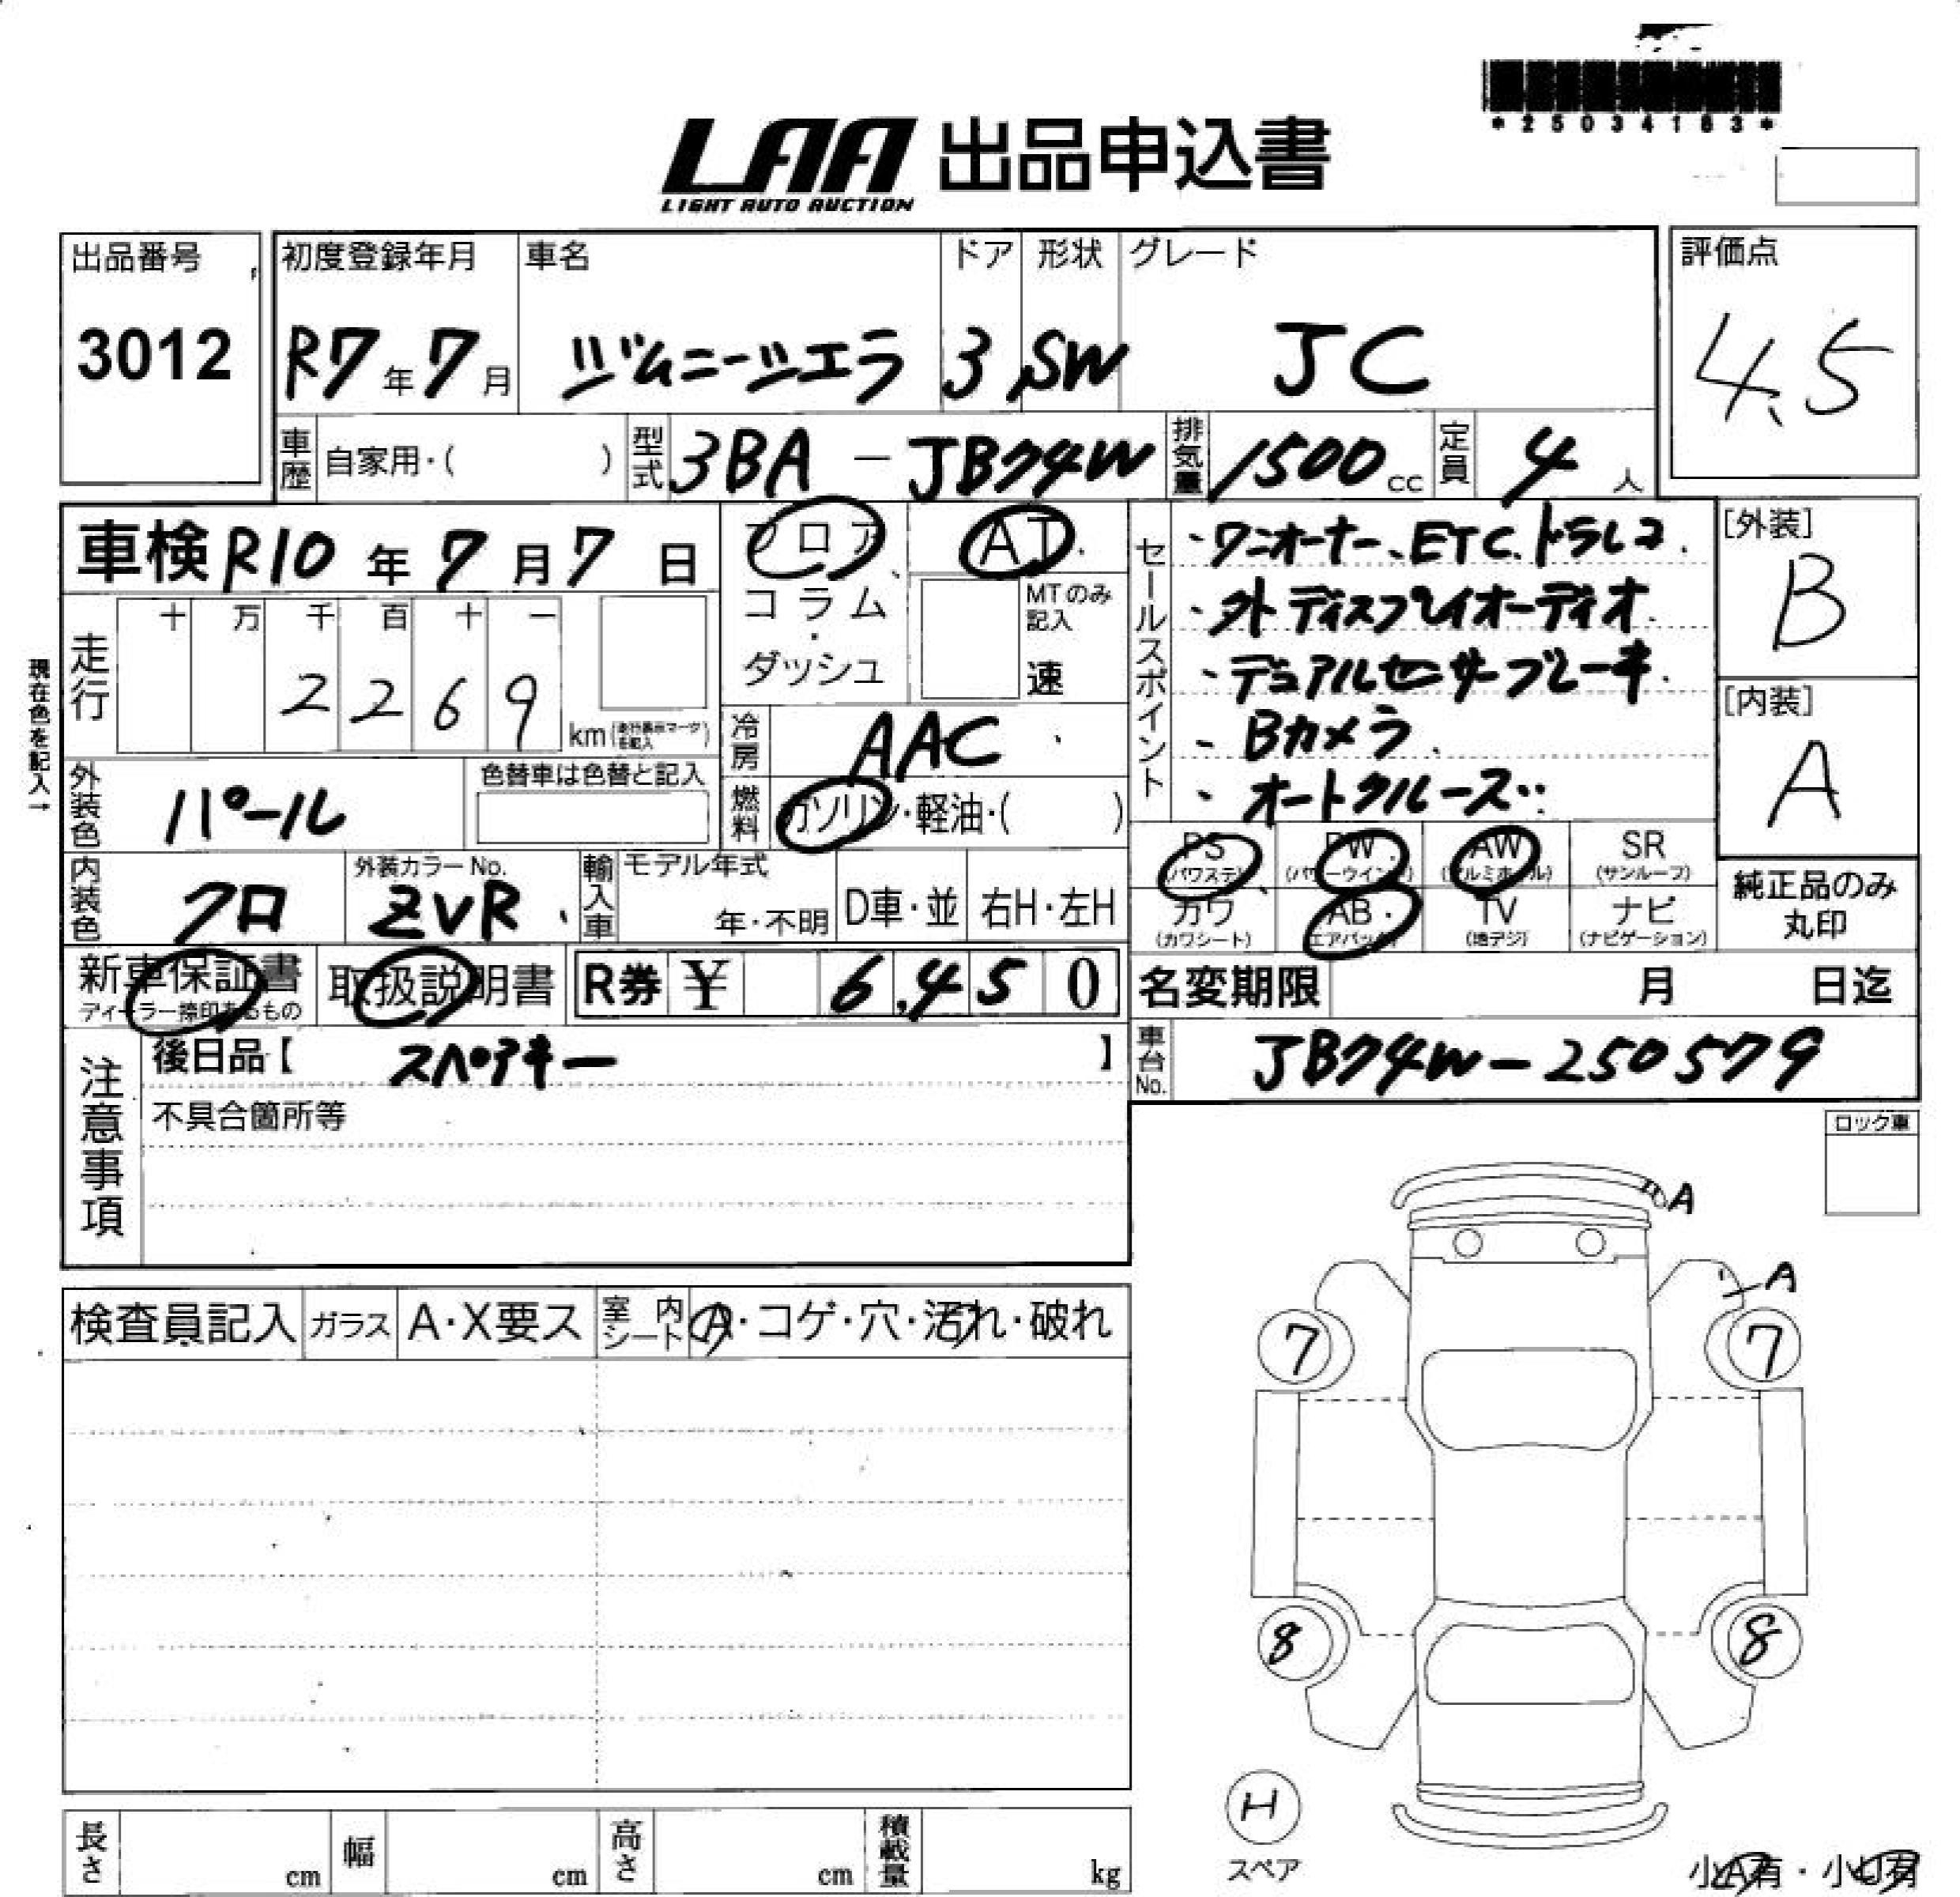 *25034163*
LAA 出品申込書
LIGHT AUTO AUCTION
出品番号
3012
初度登録年月
R7年7月
車名
ジムニーシエラ
ドア
3
形状
SW
グレード
JC
評価点
4.5
車歴
自家用・( )
型式
3BA - JB74W
排気量
1500cc
定員
4人
車検 R10年7月7日
フロア
コラム
・
ダッシュ
AT
MTのみ記入
速
セールスポイント
・ワンオーナー、ETC、ドラレコ
・外ディスプレイオーディオ
・デュアルセンサーブレーキ
・Bカメラ
・オートクルーズ
[外装]
B
[内装]
A
走行
十 万 千 百 十 一
2 2 6 9
km(走行表示マークを記入)
現在色を記入→
冷房
AAC
外装色
パール
色替車は色替と記入
燃料
ガソリン・軽油・( )
内装色
クロ
外装カラーNo.
ZVR
輸入車
モデル年式
年・不明
D車・並
右H・左H
PS
(パワステ)
PW
(パワーウインド)
AW
(アルミホイル)
SR
(サンルーフ)
カワ
(カワシート)
AB
(エアバック)
TV
(地デジ)
ナビ
(ナビゲーション)
純正品のみ
丸印
新車保証書
ディーラー捺印あるもの
取扱説明書
R券 ¥ 6,450
名変期限 月 日迄
注意事項
後日品【 スペアキー 】
不具合箇所等
車台No.
JB74W-250579
ロック車
検査員記入
ガラス
A・X要ス
室内シート
A・コゲ・穴・汚れ・破れ
A
A
7
7
8
8
H
スペア
長さ
cm
幅
cm
高さ
cm
積載量
kg
小A有・小U有